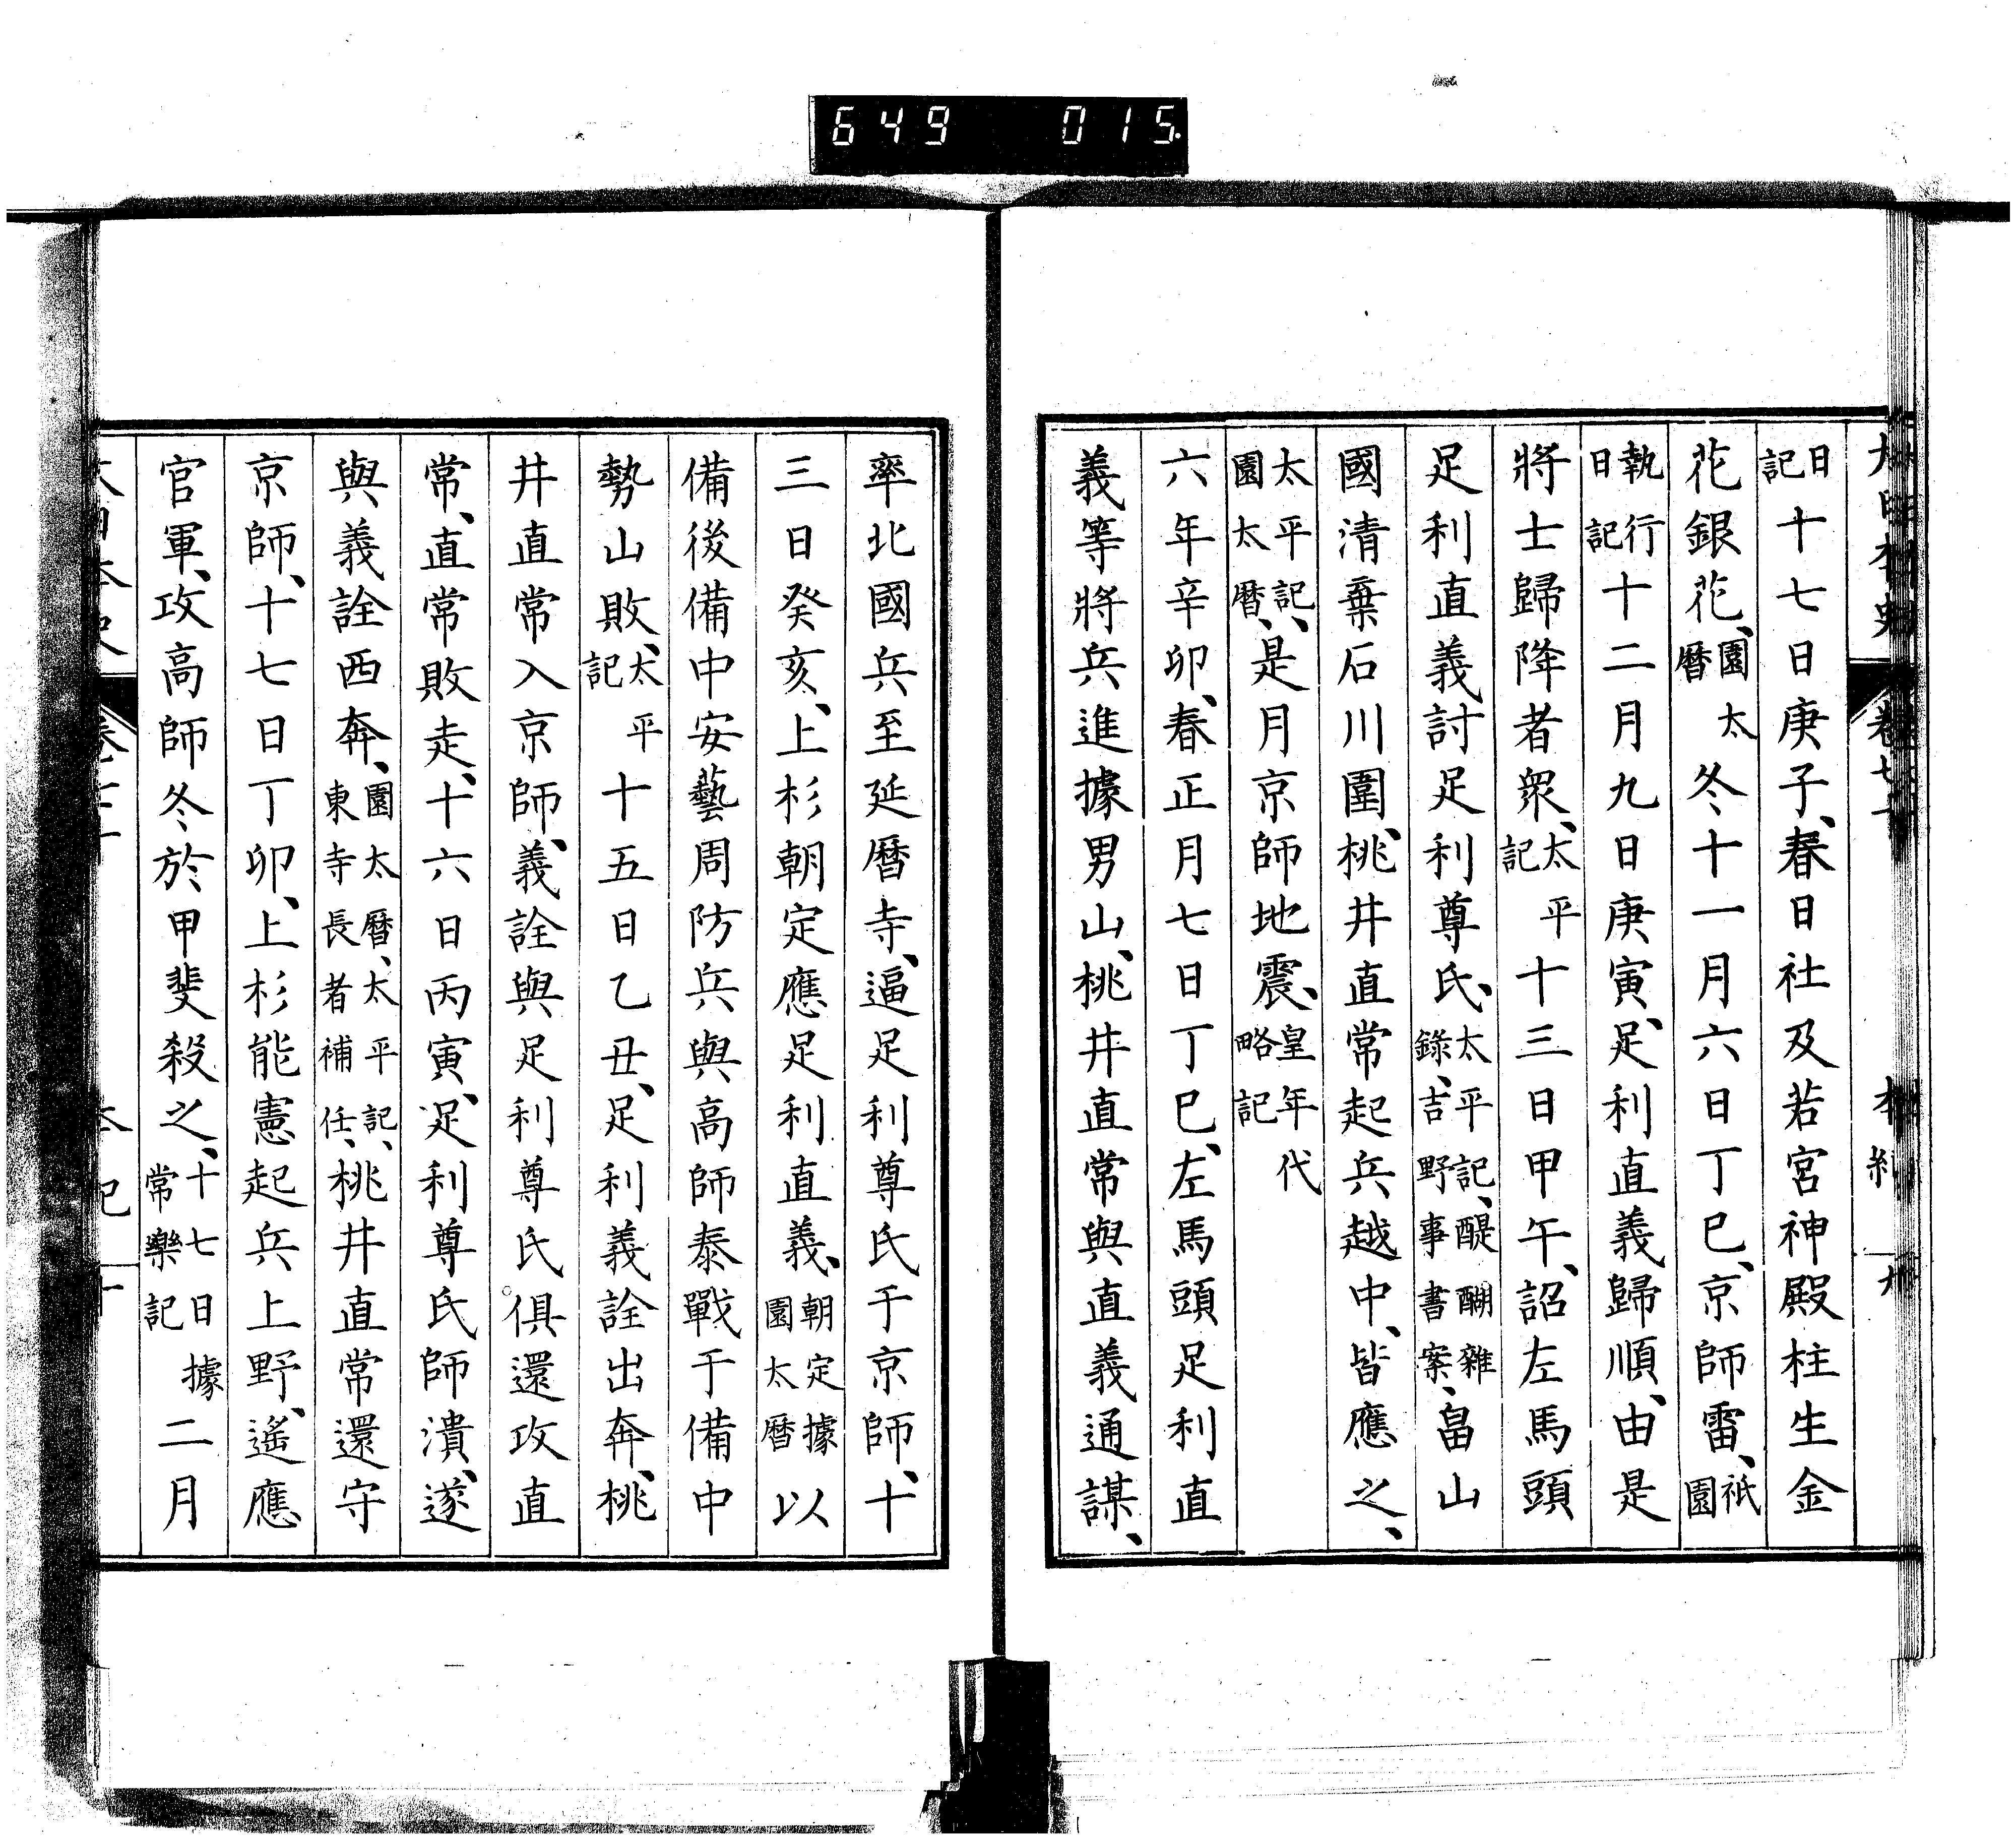 649 015.
日記十七日庚子、春日社及若宮神殿柱生金
花銀花、園太曆冬十一月六日丁巳、京師雷、祇園
執行日記十二月九日庚寅、足利直義歸順、由是
將士歸降者衆、太平記十三日甲午、詔左馬頭
足利直義討足利尊氏、太平記、醍醐雜錄、吉野事書案、畠山
國清棄石川圍、桃井直常起兵越中、皆應之、
太平記、園太曆、是月京師地震、皇年代略記
六年辛卯、春正月七日丁巳、左馬頭足利直
義等將兵進據男山、桃井直常與直義通謀、
率北國兵至延曆寺、逼足利尊氏于京師、十
三日癸亥、上杉朝定應足利直義、朝定據園太曆以
備後備中安藝周防兵與高師泰戰于備中
勢山敗、太平記十五日乙丑、足利義詮出奔、桃
井直常入京師、義詮與足利尊氏俱還攻直
常、直常敗走、十六日丙寅、足利尊氏師潰、遂
與義詮西奔、園太曆、太平記、東寺長者補任、桃井直常還守
京師、十七日丁卯、上杉能憲起兵上野、遙應
官軍、攻高師冬於甲斐殺之、十七日據常樂記二月